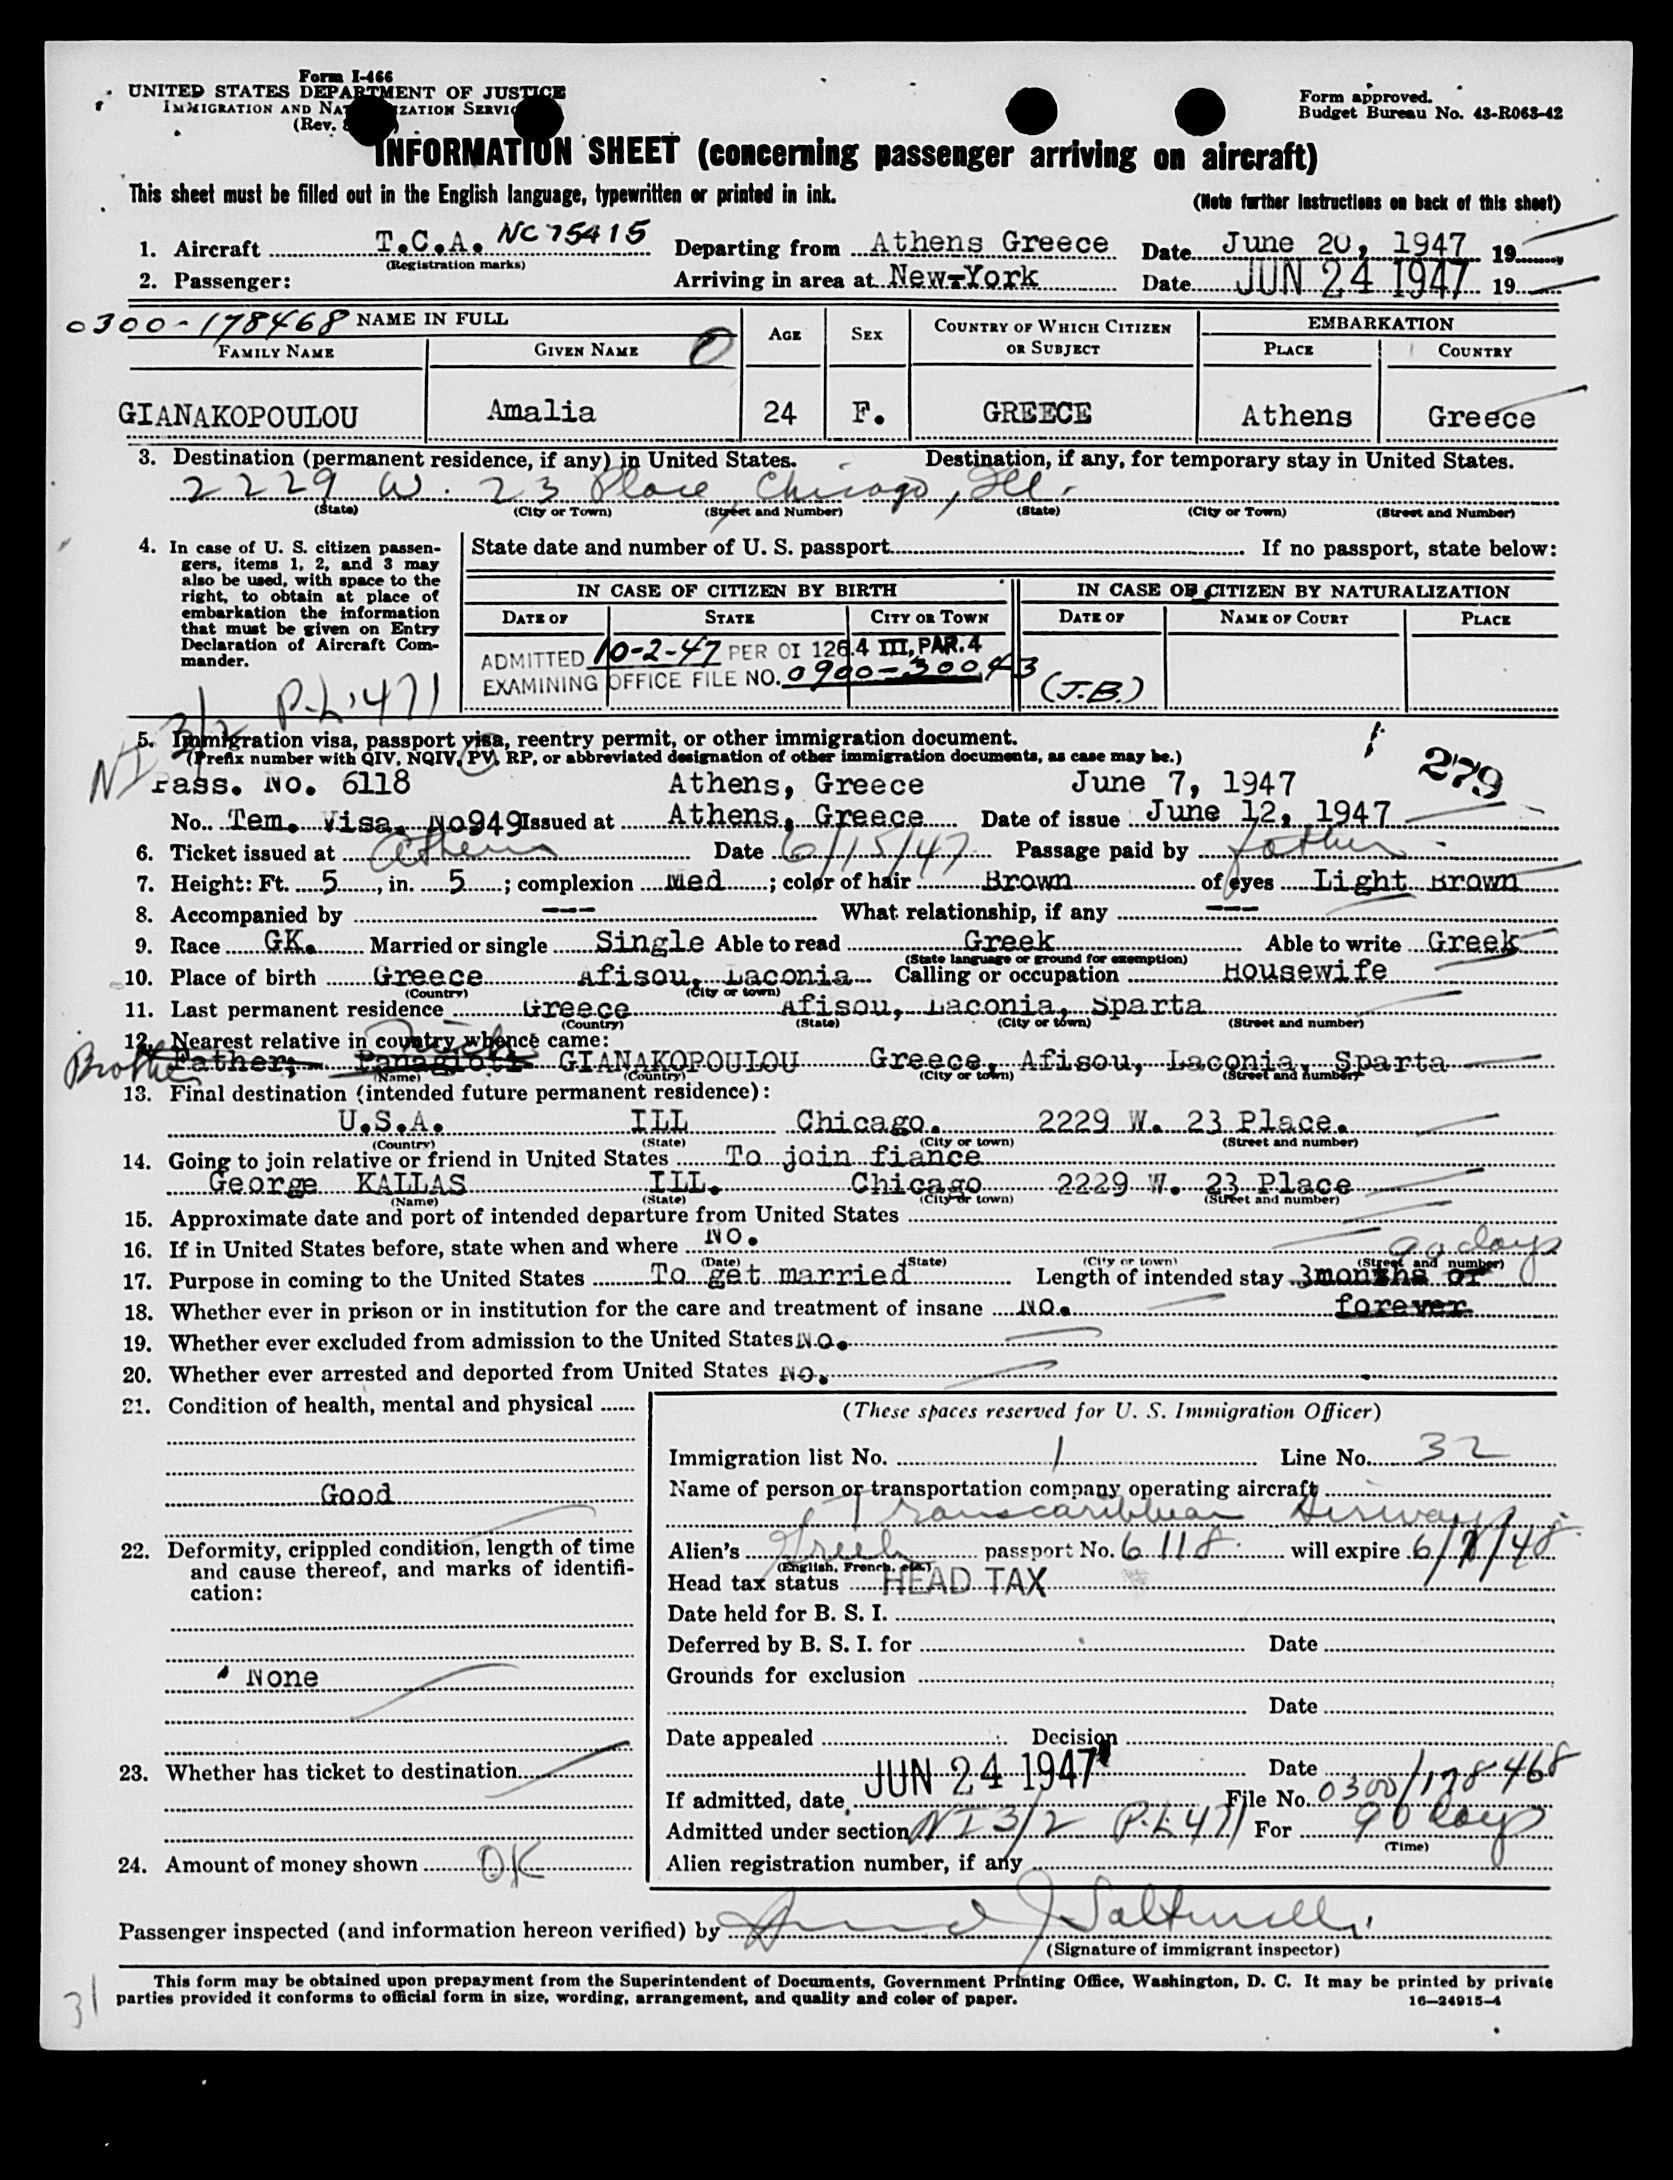 Form I-466
UNITED STATES DEPARTMENT OF JUSTICE
IMMIGRATION AND NATURALIZATION SERVICE
(Rev.
Form approved.
Budget Bureau No. 43-R063-42
INFORMATION SHEET (concerning passenger arriving on aircraft)
This sheet must be filled out in the English language, typewritten or printed in ink.
(Note further instructions on back of this sheet)
1. Aircraft T.C.A. NC 75415 Departing from Athens Greece Date June 20, 1947 19
(Registration marks)
2. Passenger: Arriving in area at New-York Date JUN 24 1947 19
0300-178468 NAME IN FULL AGE SEX COUNTRY OF WHICH CITIZEN OR SUBJECT EMBARKATION
FAMILY NAME GIVEN NAME PLACE COUNTRY
GIANAKOPOULOU Amalia 24 F. GREECE Athens Greece
3. Destination (permanent residence, if any) in United States. Destination, if any, for temporary stay in United States.
2229 W. 23 Place, Chicago, Ill.
(State) (City or Town) (Street and Number) (State) (City or Town) (Street and Number)
4. In case of U. S. citizen passengers, items 1, 2, and 3 may also be used, with space to the right, to obtain at place of embarkation the information that must be given on Entry Declaration of Aircraft Commander.
State date and number of U. S. passport If no passport, state below:
IN CASE OF CITIZEN BY BIRTH IN CASE OF CITIZEN BY NATURALIZATION
DATE OF STATE CITY OR TOWN DATE OF NAME OF COURT PLACE
ADMITTED 10-2-47 PER OI 126.4 III, PAR. 4
EXAMINING OFFICE FILE NO. 0900-30043 (J.B.)
NI 3/2 P.L. 471
5. Immigration visa, passport visa, reentry permit, or other immigration document.
(Prefix number with QIV, NQIV, PV, RP, or abbreviated designation of other immigration documents, as case may be.)
279
Pass. No. 6118 Athens, Greece June 7, 1947
No. Tem. Visa. No949 Issued at Athens, Greece Date of issue June 12, 1947
6. Ticket issued at Athens Date 6/15/47 Passage paid by father
7. Height: Ft. 5, in. 5; complexion Med; color of hair Brown of eyes Light Brown
8. Accompanied by --- What relationship, if any ---
9. Race GK. Married or single Single Able to read Greek Able to write Greek
(State language or ground for exemption)
10. Place of birth Greece Afisou, Laconia Calling or occupation Housewife
(Country) (City or town)
11. Last permanent residence Greece Afisou, Laconia, Sparta
(Country) (State) (City or town) (Street and number)
12. Nearest relative in country whence came:
Brother Father; Panagioti GIANAKOPOULOU Greece, Afisou, Laconia, Sparta
(Name) (Country) (City or town) (Street and number)
13. Final destination (intended future permanent residence):
U.S.A. ILL Chicago. 2229 W. 23 Place.
(Country) (State) (City or town) (Street and number)
14. Going to join relative or friend in United States To join fiance
George KALLAS ILL. Chicago 2229 W. 23 Place
(Name) (State) (City or town) (Street and number)
15. Approximate date and port of intended departure from United States
16. If in United States before, state when and where NO.
(Date) (State) (City or town) (Street and number)
90 days
17. Purpose in coming to the United States To get married Length of intended stay 3months or
18. Whether ever in prison or in institution for the care and treatment of insane NO. forever
19. Whether ever excluded from admission to the United States NO.
20. Whether ever arrested and deported from United States NO.
21. Condition of health, mental and physical
Good
22. Deformity, crippled condition, length of time and cause thereof, and marks of identification:
None
23. Whether has ticket to destination
24. Amount of money shown OK
(These spaces reserved for U. S. Immigration Officer)
Immigration list No. 1 Line No. 32
Name of person or transportation company operating aircraft
Transcaribbean Airways
Alien's Greek passport No. 6118 will expire 6/7/48
(English, French, etc.)
Head tax status HEAD TAX
Date held for B. S. I.
Deferred by B. S. I. for Date
Grounds for exclusion
Date
Date appealed Decision
JUN 24 1947 Date
If admitted, date File No. 0300/178468
Admitted under section NI 3/2 P.L 471 For 90 days
(Time)
Alien registration number, if any
Passenger inspected (and information hereon verified) by
(Signature of immigrant inspector)
This form may be obtained upon prepayment from the Superintendent of Documents, Government Printing Office, Washington, D. C. It may be printed by private
parties provided it conforms to official form in size, wording, arrangement, and quality and color of paper.
16—24915-4
31